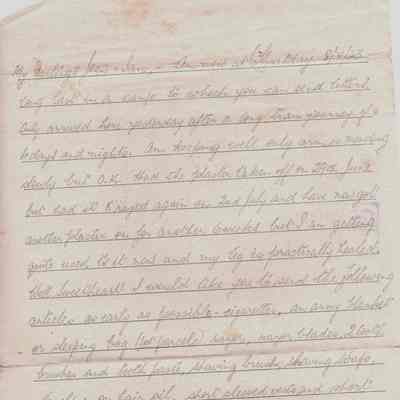 My Dearest
long last in a camp to which you can send letters.
Only arrived here yesterday after a long train journey of
6 days and nights. Am keeping well only arm is mending
slowly but O.K. Had the plaster taken off on 29th June
but had it X rayed again on 2nd July and have now got
another plaster on for another weeks but I am getting
quite used to it now and my leg is practically healed.
Well Sweetheart I would like you to send the following
articles as early as possible - cigarettes, an army blanket
or sleeping bag (1st parcel) razor, razor blades, tooth
brushes and tooth paste, shaving brush, shaving soap,
hair oil, short sleeved vests and short